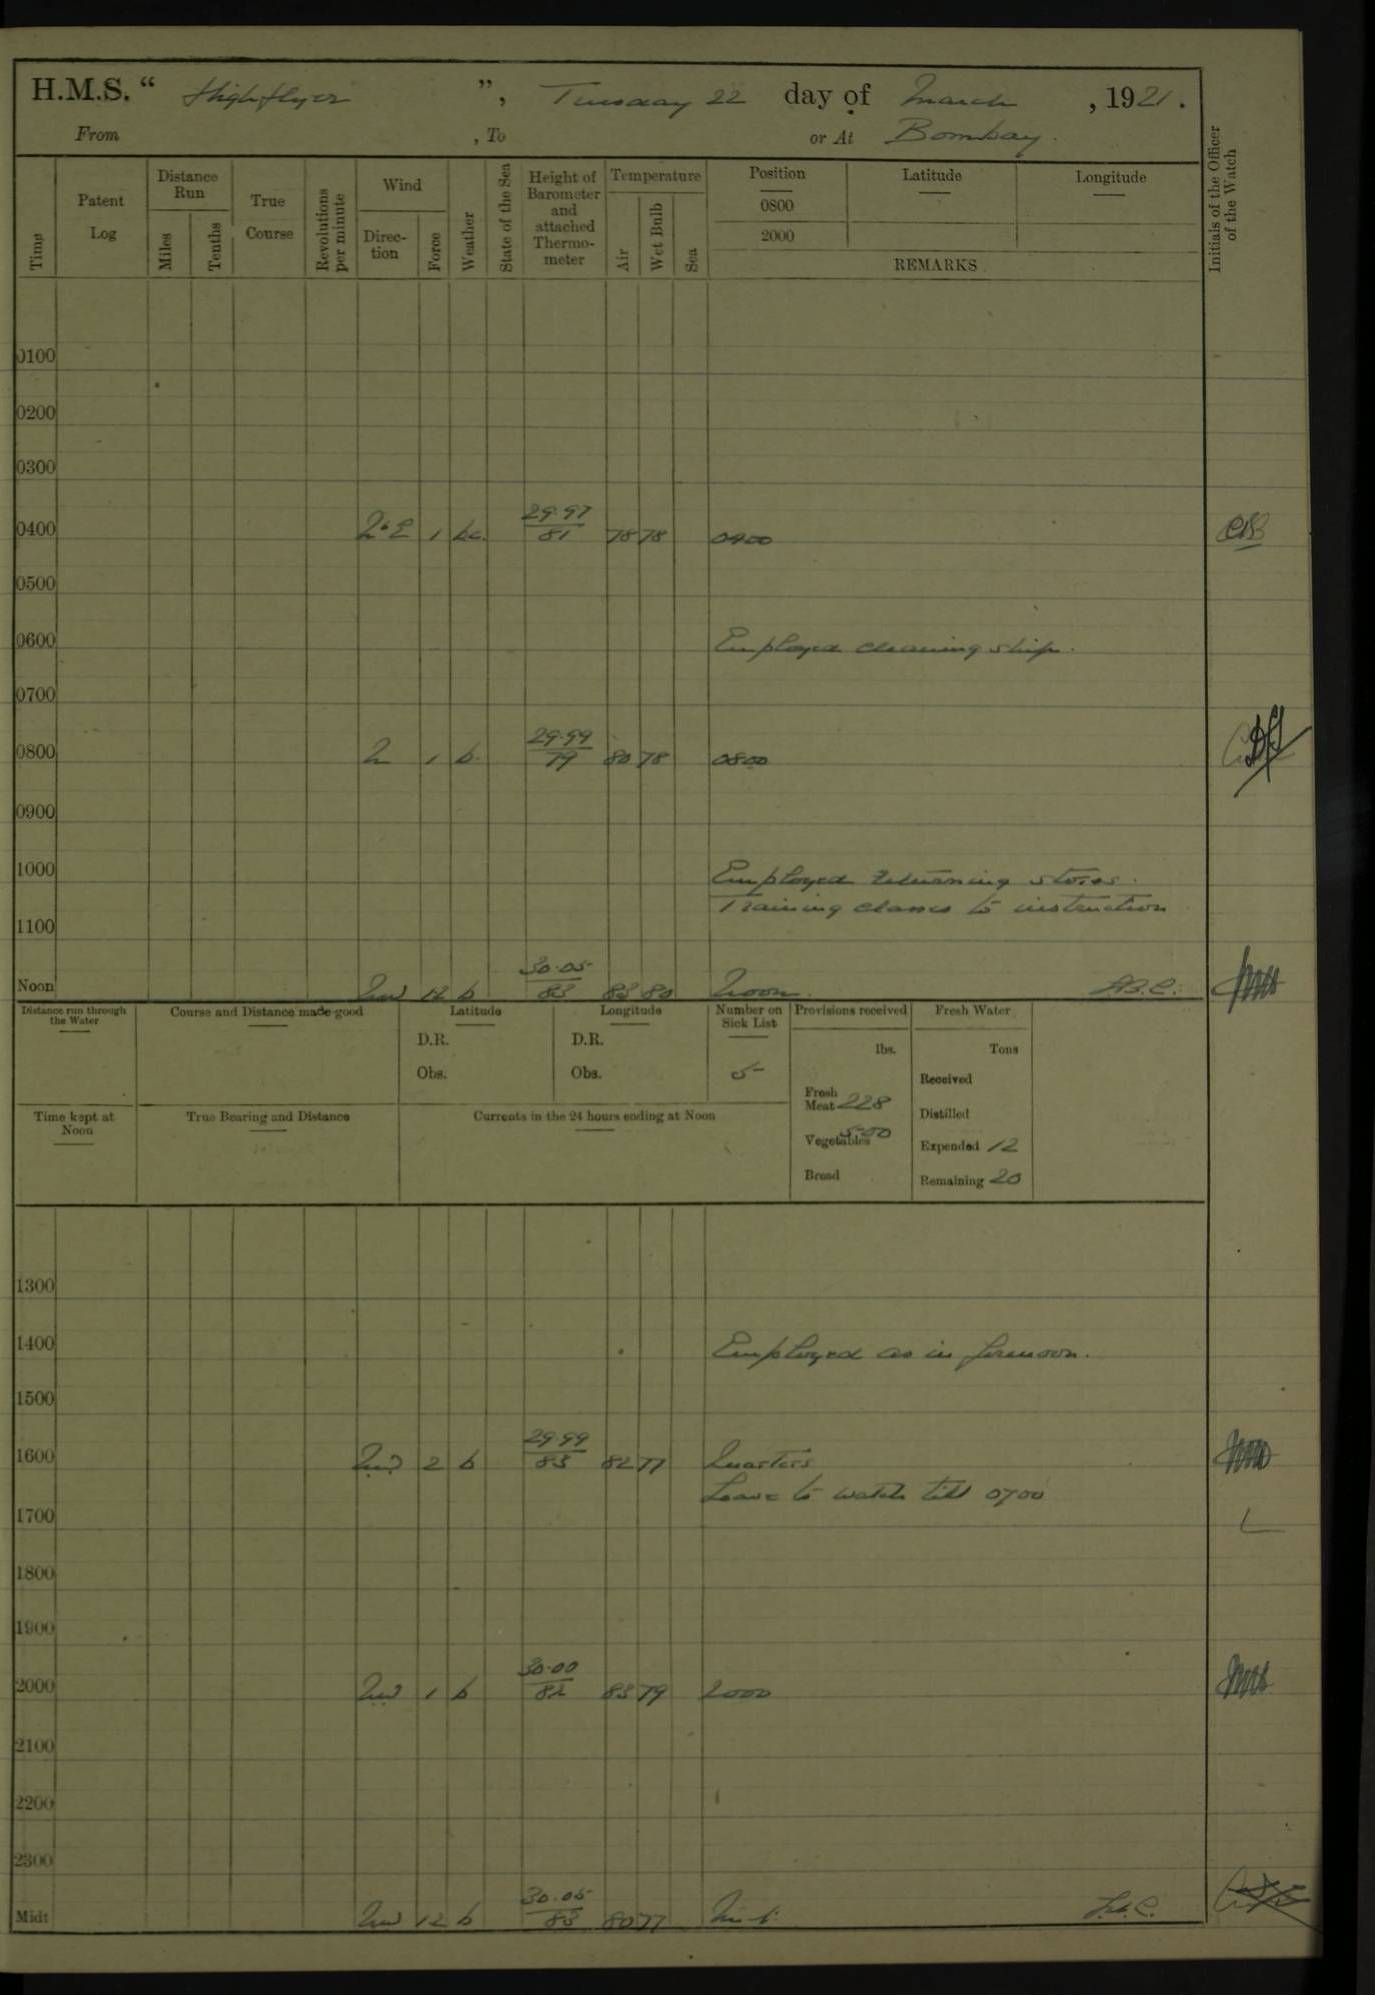 H.M.S. " Highflyer ", Tuesday 22 day of March, 1921.
From , To or At Bombay.
Time
Patent Log
Distance Run
Miles
Tenths
True Course
Revolutions per minute
Wind
Direction
Force
Weather
State of the Sea
Height of Barometer and attached Thermometer
Temperature
Air
Wet Bulb
Sea
Position
0800
2000
Latitude
Longitude
REMARKS
Initials of the Officer of the Watch
0100
0200
0300
0400 N'E 1 bc. 29.97 / 81 78 78 0400
0500
0600 Employed cleaning ship.
0700
0800 N 1 b. 29.99 / 79 80 78 0800
0900
1000 Employed returning stores.
Training classes to instruction
1100
Noon NW 12 b 30.05 / 83 83 80 Noon.
Distance run through the Water
Course and Distance made good
Latitude
D.R.
Obs.
Longitude
D.R.
Obs.
Number on Sick List
5
Provisions received
lbs.
Fresh Meat 228
Vegetables 500
Bread
Fresh Water
Tons
Received
Distilled
Expended 12
Remaining 20
Time kept at Noon
True Bearing and Distance
Currents in the 24 hours ending at Noon
1300
1400 Employed as in forenoon.
1500
1600 NW 2 b 29.99 / 83 82 77 Quarters
Leave to watch till 0700
1700
1800
1900
2000 NW 1 b 30.00 / 82 83 79 2000
2100
2200
2300
Midt NW 12 b 30.05 / 83 80 77